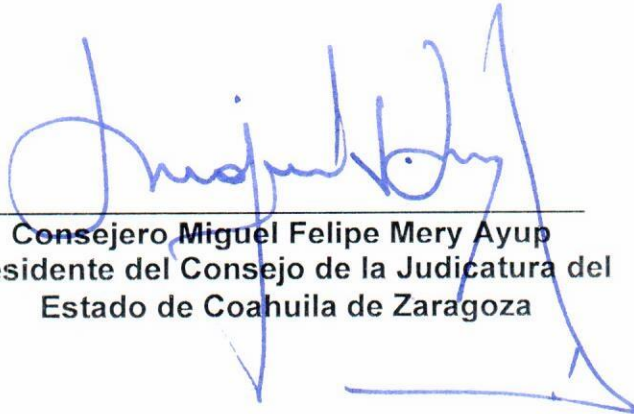 Consejero Miguel Felipe Mery Ayup
esidente del Consejo de la Judicatura del
Estado de Coahuila de Zaragoza